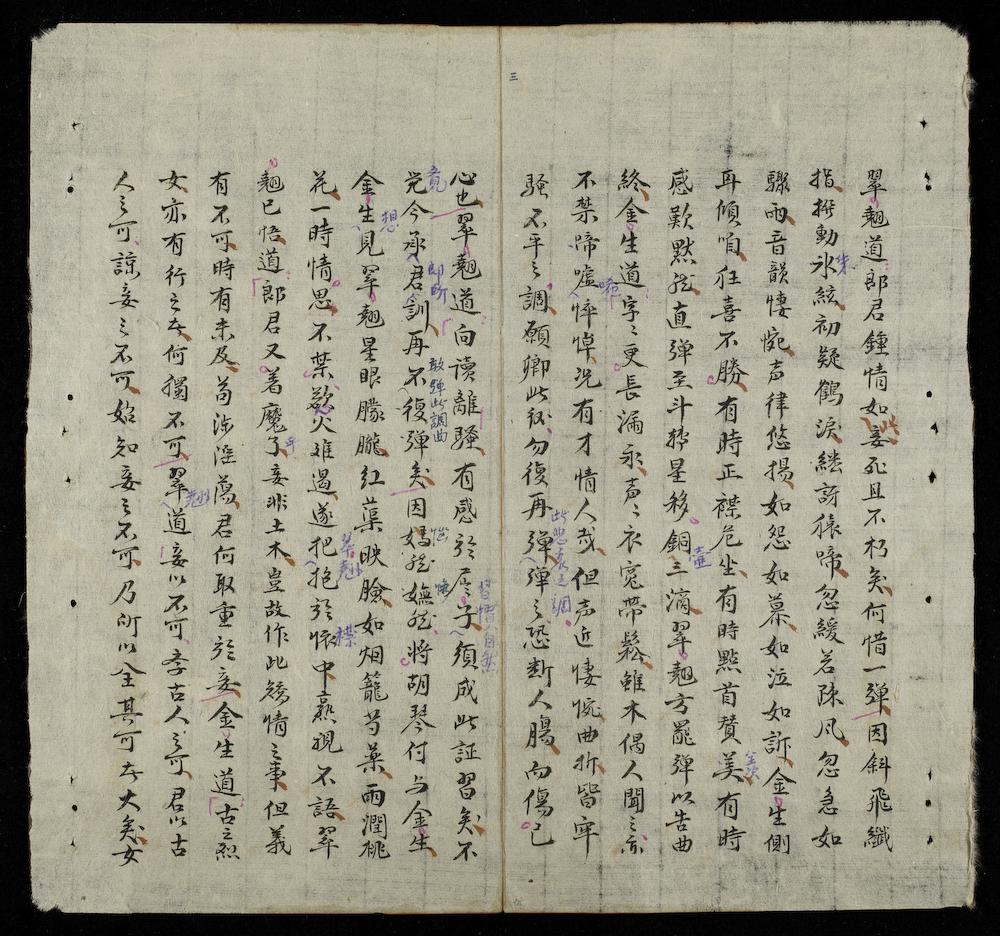 三
翠翹道郎君鍾情如此妾死且不朽矣何惜一弹因斜飛纖
指撥動氷絃初疑鶴淚繼訝猿啼忽緩若疎风忽急如
驟雨音韻悽惋声律悠揚如怨如慕如泣如訴金生側
耳傾咱狂喜不勝有時正襟危坐有時點首賛美有時
感歎黙然直弹至斗轉星移銅壷三滴翠翹方罷弹以告曲
終金生道字々更長漏永声々衣寛帶鬆雖木偶人聞之亦
不禁啼嘘悴悼况有才情人哉但声近悽惋曲折皆牢
騷不平之調願卿此後勿復再弹弹之恐断人膓而傷己
心也翠翹道向讀離騷有感於屈子須成此証習矣不
竟
覚今承君訓再不復弹矣因嬌然嫵然將胡琴付与金生
想
金生見翠翹星眼朦朧紅蕖映臉如烟籠芍藥雨潤桃
花一時情思不禁慾火难遏遂把抱於懷中熟視不語翠
翹已悟道郎君又着魔了妾非土木豈故作此矯情之事但義
有不可時有未及苟涉淫蕩君何取重於妾金生道古之烈
女亦有行之者何獨不可翠道妾以不可孝古人之可君以古
翹
人之可諒妾之不可始知妾之不可乃所以全其可者大矣女
敢弹此調曲
此悲哀之調
習慣自然
翠翹